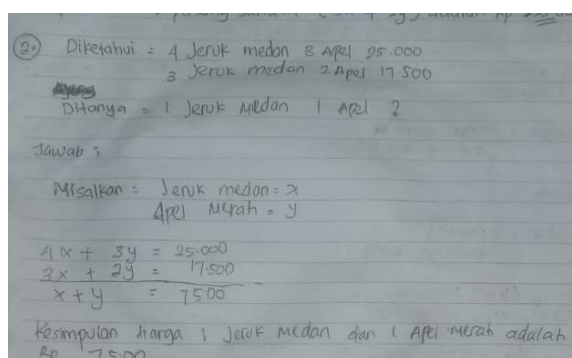 2. Diketahui = 4 Jeruk medan 3 Apel 25.000
3 Jeruk medan 2 Apel 17 500
Ditanya = 1 Jeruk Medan 1 Apel ?
Jawab :
Misalkan = Jeruk medan = x
Apel Merah = y
4x + 3y = 25.000
3x + 2y = 17.500
x + y = 7500
Kesimpulan harga 1 Jeruk Medan dan 1 Apel Merah adalah
Rp 75.00